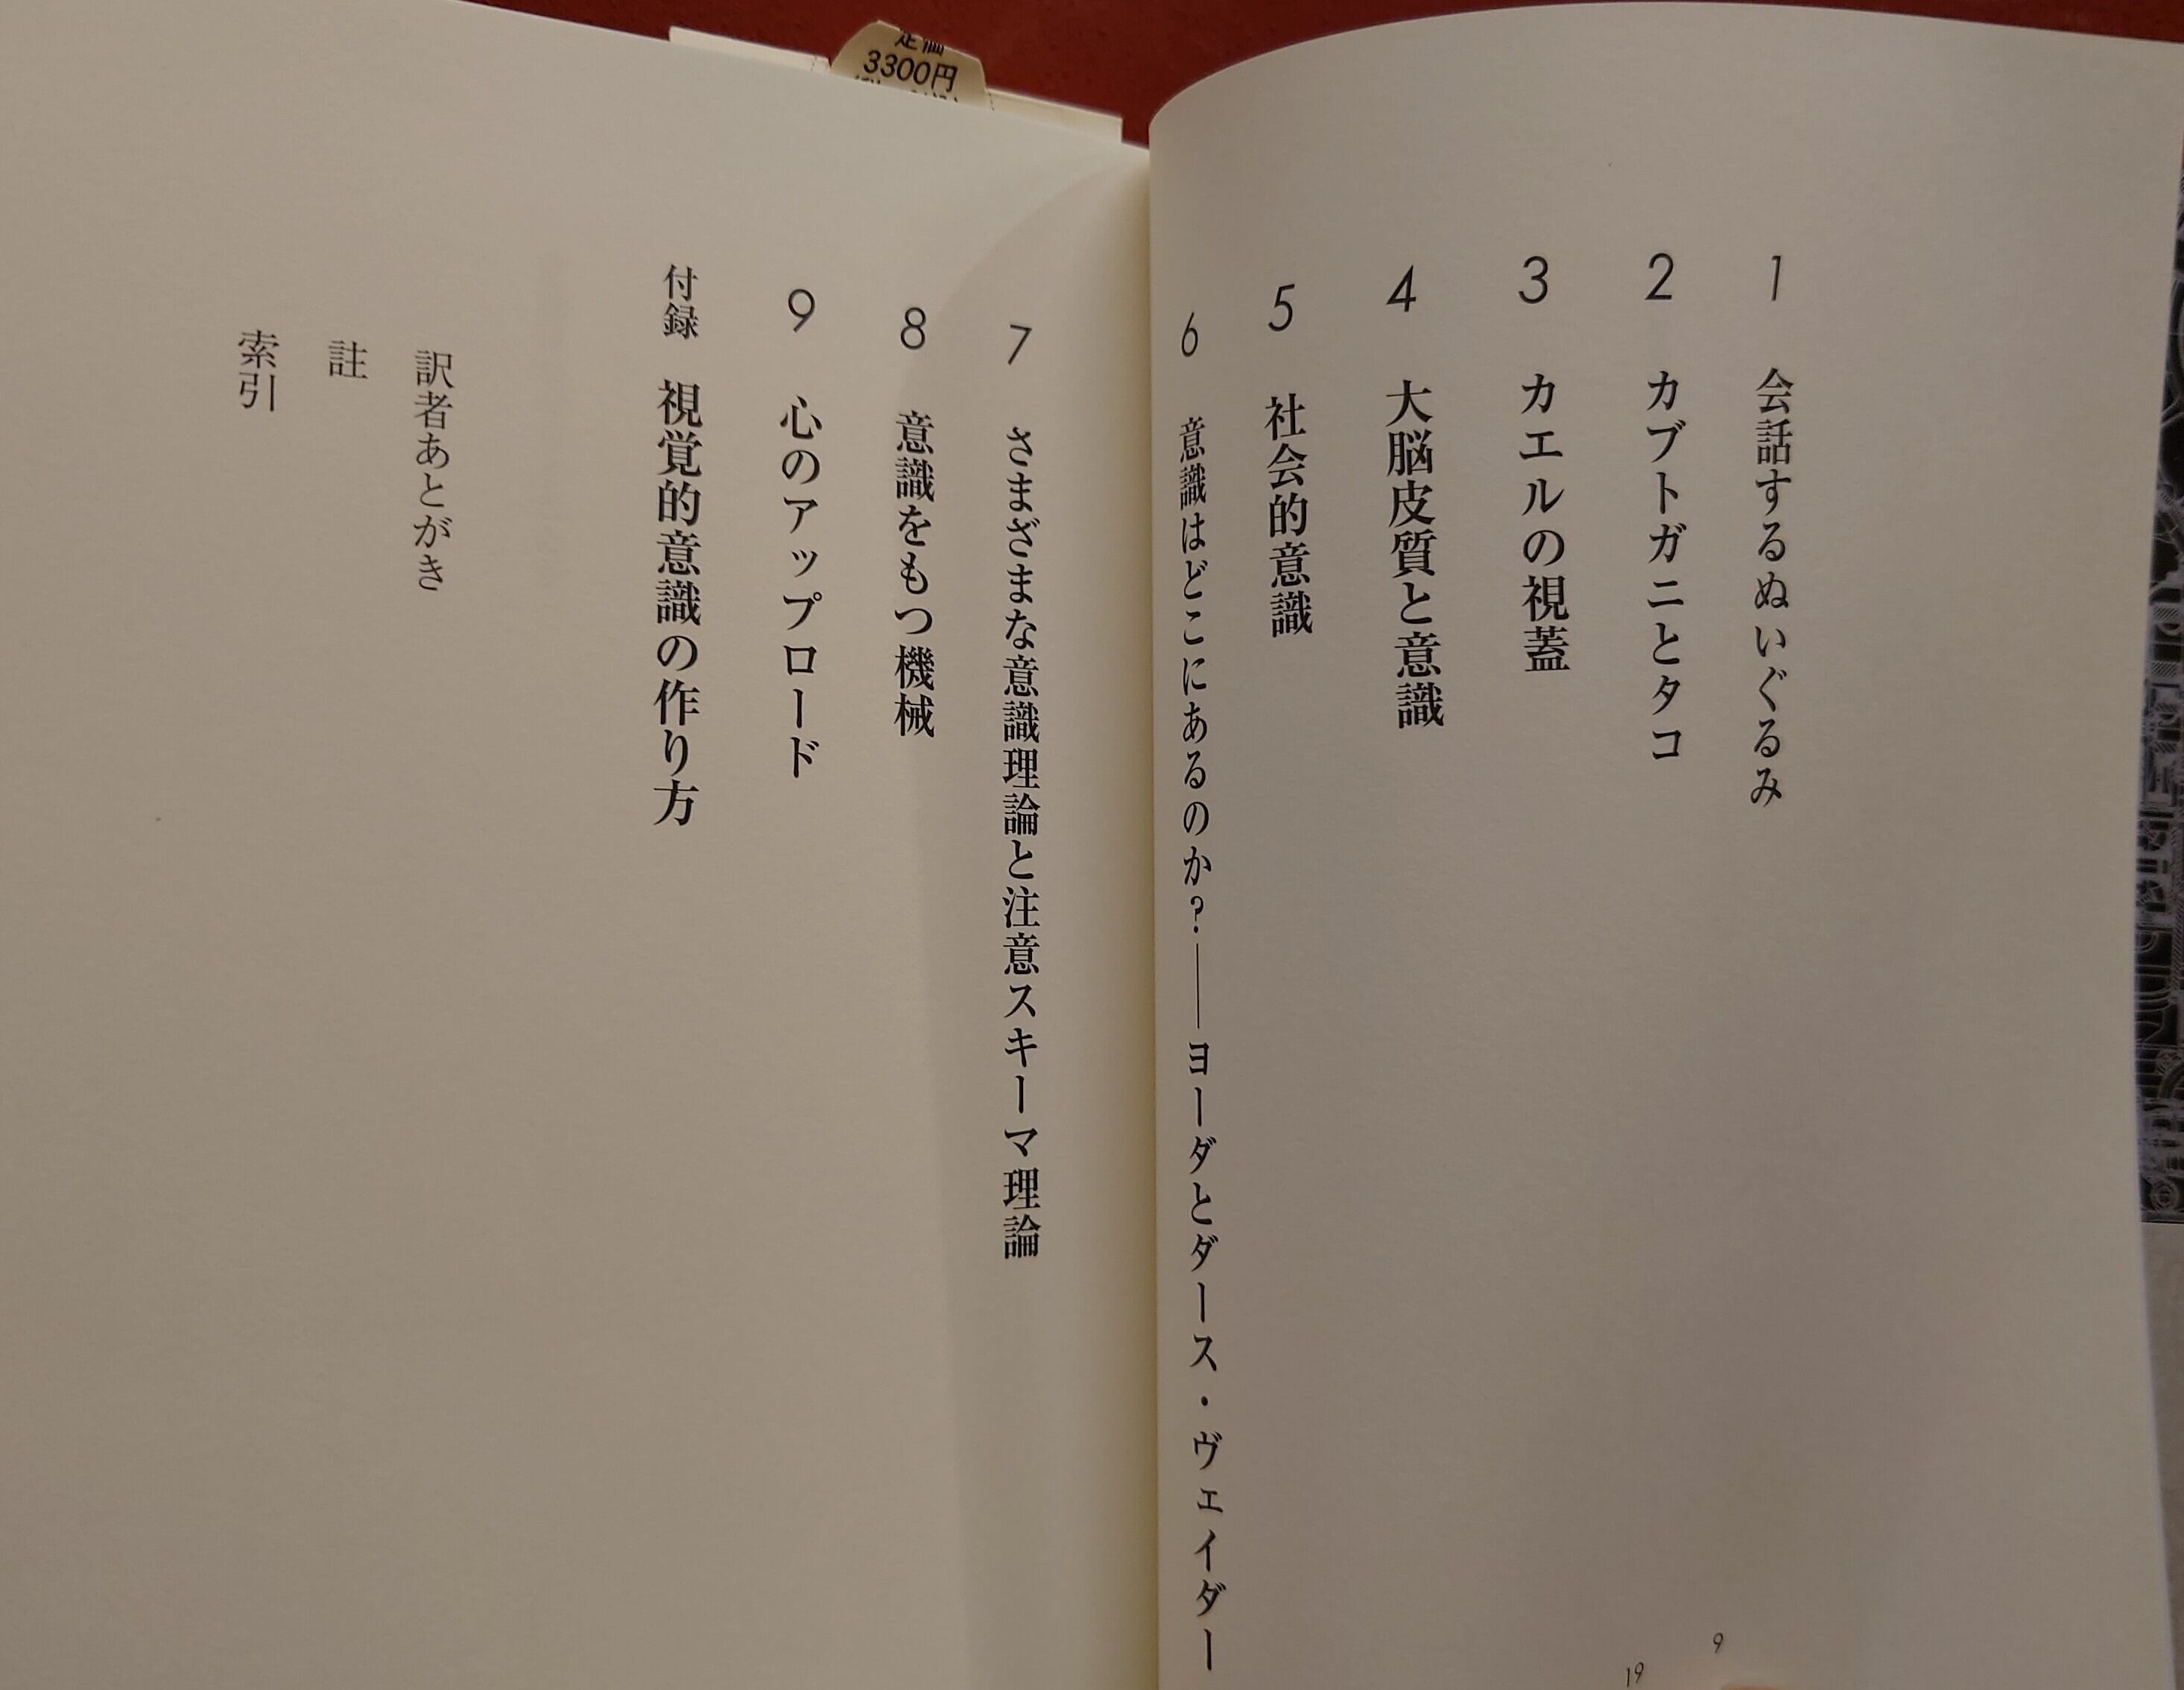 定価
3300円
1 会話するぬいぐるみ
9
2 カブトガニとタコ
19
3 カエルの視蓋
4 大脳皮質と意識
5 社会的意識
6 意識はどこにあるのか?——ヨーダとダース・ヴェイダー
7 さまざまな意識理論と注意スキーマ理論
8 意識をもつ機械
9 心のアップロード
付録 視覚的意識の作り方
訳者あとがき
註
索引